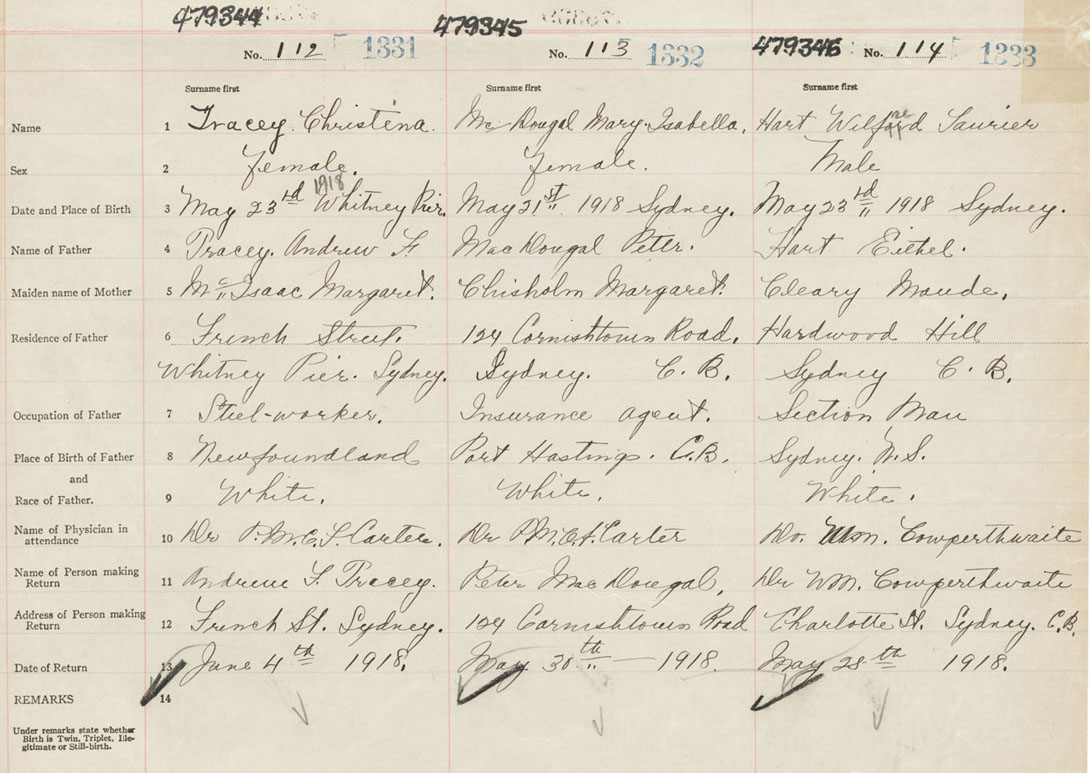 479344 479345 479346
No. 112 1331 No. 113 1332 No. 114 1333
Surname first Surname first Surname first
Name 1 Tracey Christena. Mc Dougal Mary Isabella, Hart Wilfred Laurier
Sex 2 Female. Female. Male
1918
Date and Place of Birth 3 May 23rd Whitney Pier. May 21st 1918 Sydney. May 23rd 1918 Sydney.
Name of Father 4 Tracey. Andrew F. MacDougal Peter. Hart Eithel.
Maiden name of Mother 5 McIsaac Margaret. Chisholm Margaret. Cleary Maude,
Residence of Father 6 French Street. 124 Cornishtown Road, Hardwood Hill
Whitney Pier. Sydney. Sydney. C. B. Sydney C. B.
Occupation of Father 7 Steel-worker. Insurance agent. Section Man
Place of Birth of Father 8 Newfoundland Port Hastings. C.B. Sydney. N.S.
and
Race of Father. 9 White. White, White.
Name of Physician in
attendance 10 Dr Carter. Dr Carter Dr. Wm. Cowperthwaite
Name of Person making
Return 11 Andrew F. Tracey. Peter MacDougal, Dr Wm. Cowperthwaite
Address of Person making
Return 12 French St. Sydney. 124 Cornishtown Road Charlotte St. Sydney. C.B.
Date of Return 13 June 4th 1918. May 30th 1918. May 28th 1918.
REMARKS 14
Under remarks state whether
Birth is Twin, Triplet, Ille-
gitimate or Still-birth.